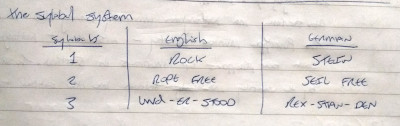 The sylabol system
Sylables English GERMAN
1 ROCK STEIN
2 ROPE FREE SEIL FREE
3 UND-ER-STOOD VEX-STAN-DEN